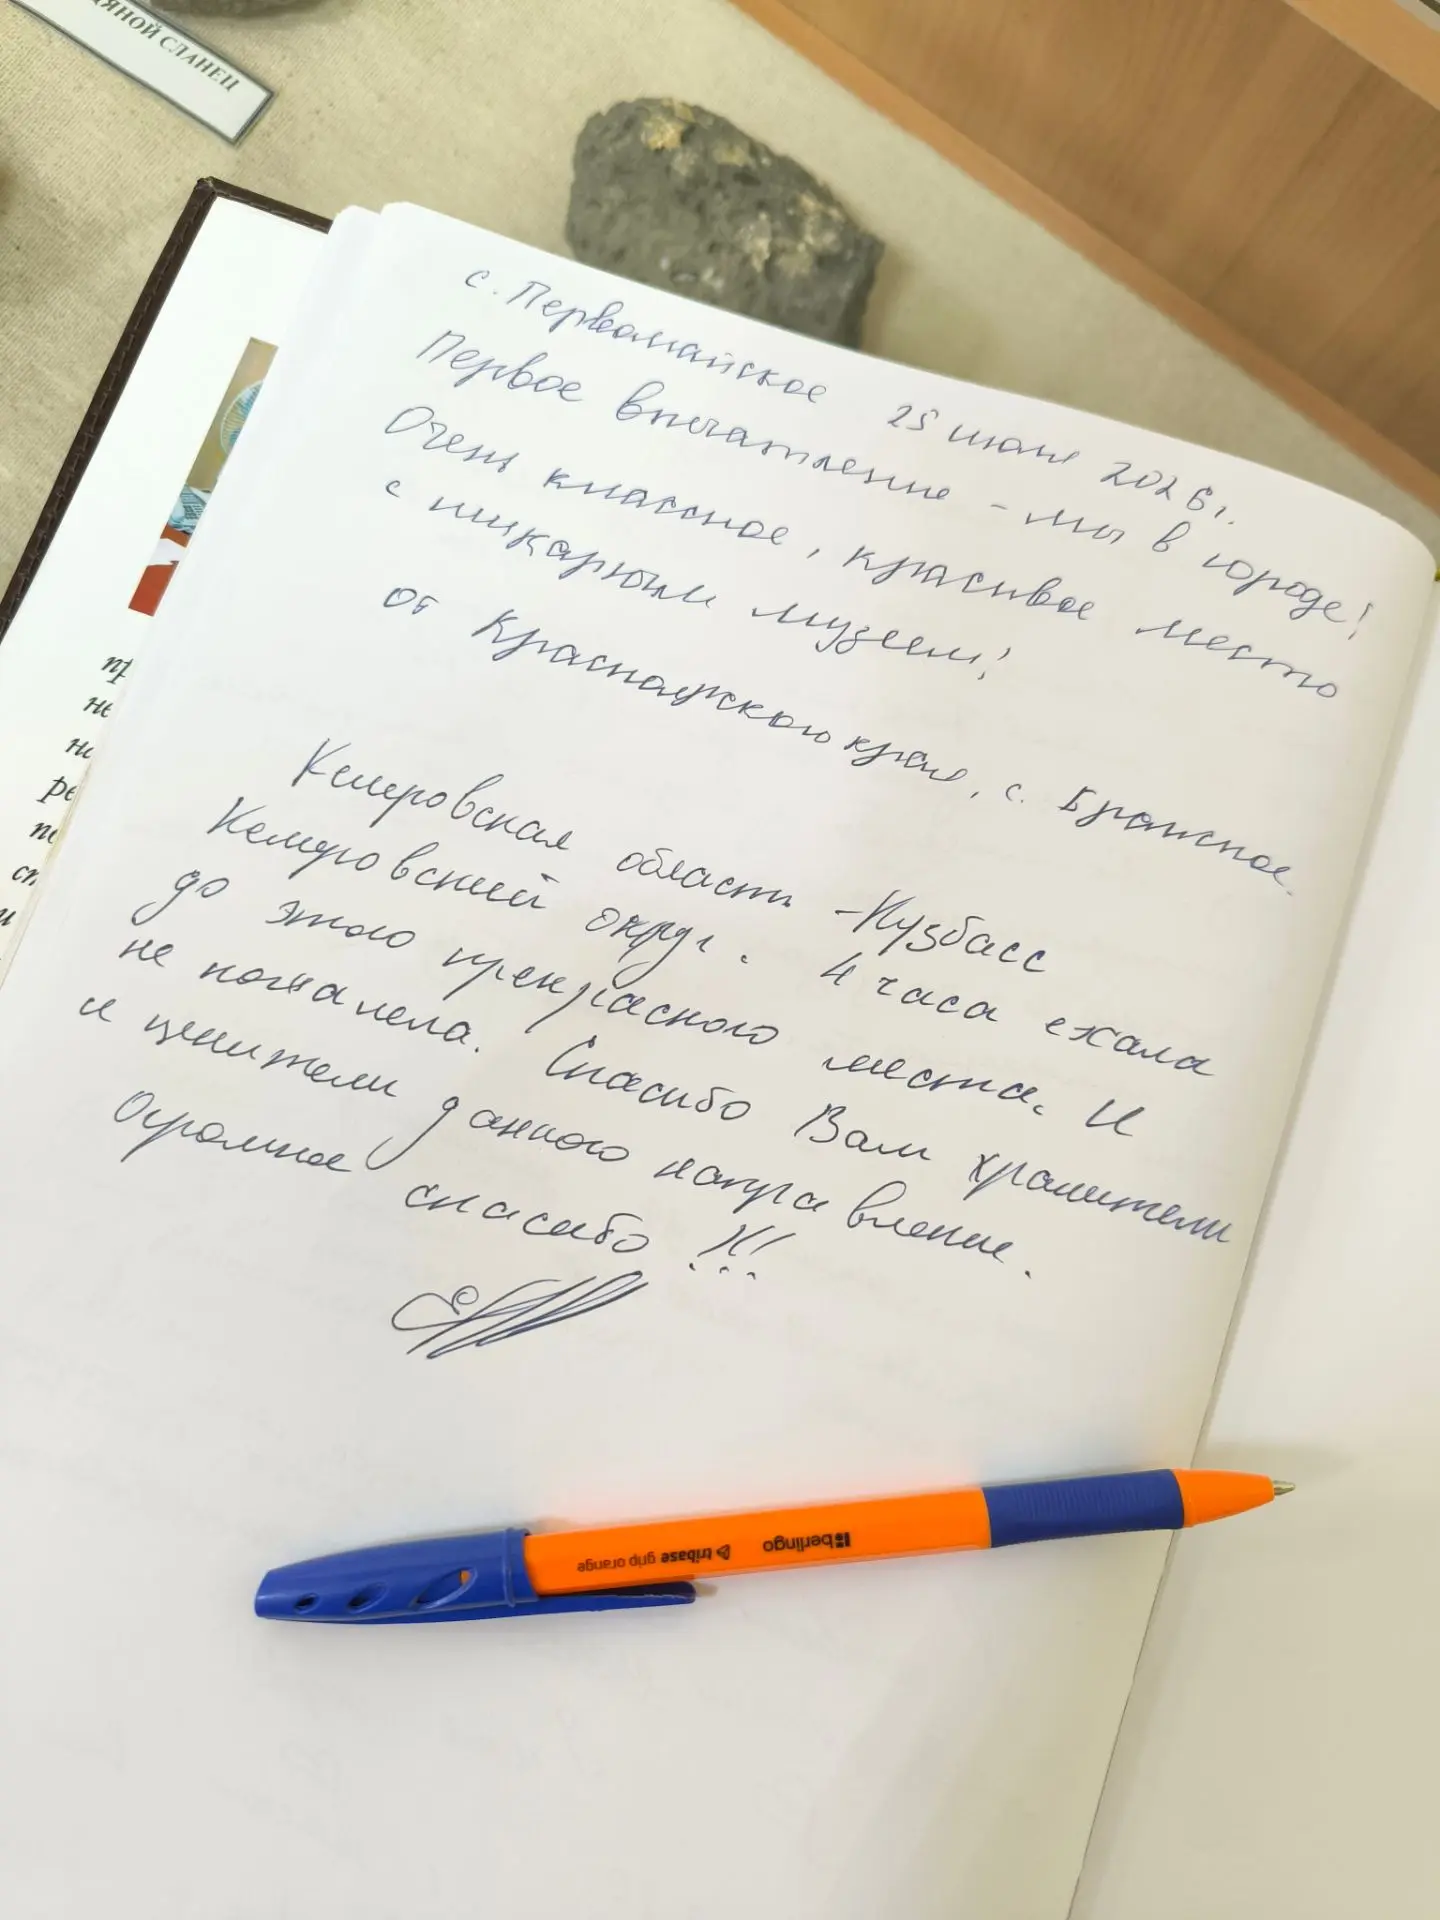 ДЯНОЙ СЛАНЕЦ
с. Первомайское 25 июня 2026 г.
Первое впечатление - мы в городе!
Очень классное, красивое место
с шикарным музеем!
от Красноярского края, с. Брянское.
Кемеровская область - Кузбасс
Кемеровский округ. 4 часа ехала
до этого прекрасного места. И
не пожалела. Спасибо Вам хранители
и ценители данного направления.
Огромное спасибо!!!
berlingo
tribase grip orange